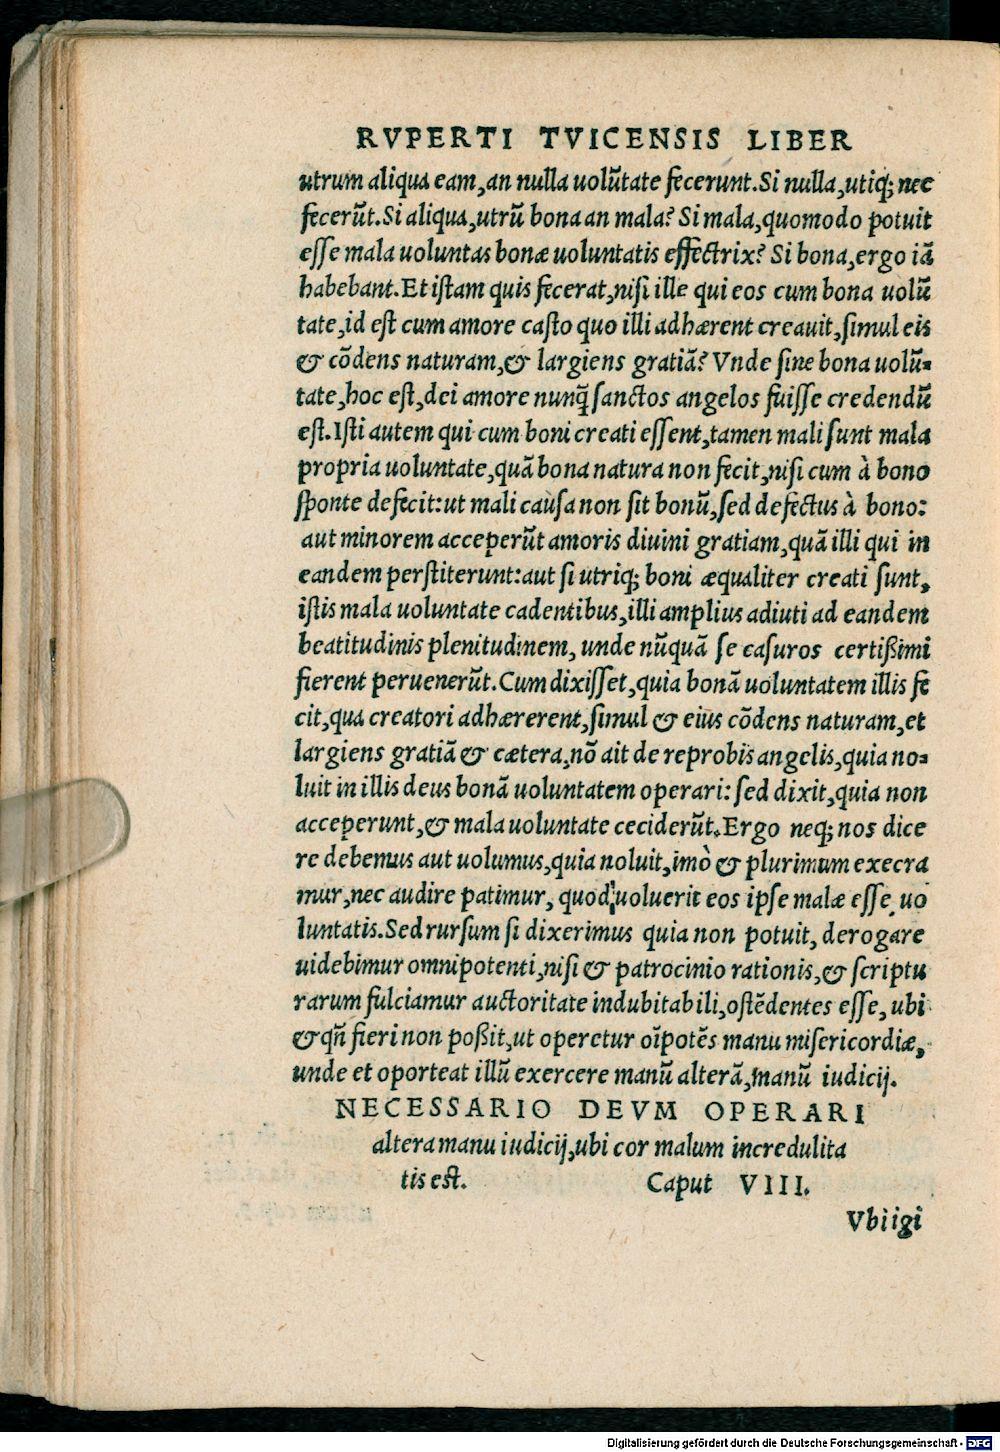 RVPERTI TVICENSIS LIBER
utrum aliqua eam, an nulla uolũtate fecerunt. Si nulla, utiq; nec
fecerũt. Si aliqua, utrũ bona an mala? Si mala, quomodo potuit
esse mala uoluntas bonæ uoluntatis effectrix? Si bona, ergo iã
habebant. Et istam quis fecerat, nisi ille qui eos cum bona uolũ
tate, id est cum amore casto quo illi adhærent creauit, simul eis
& cõdens naturam, & largiens gratiã? Vnde sine bona uolũ-
tate, hoc est, dei amore nunq̃ sanctos angelos fuisse credendũ
est. Isti autem qui cum boni creati essent, tamen mali sunt mala
propria uoluntate, quã bona natura non fecit, nisi cum à bono
sponte defecit: ut mali causa non sit bonũ, sed defectus à bono:
aut minorem acceperũt amoris diuini gratiam, quã illi qui in
eandem perstiterunt: aut si utriq; boni æqualiter creati sunt,
istis mala uoluntate cadentibus, illi amplius adiuti ad eandem
beatitudinis plenitudinem, unde nũquã se casuros certißimi
fierent peruenerũt. Cum dixisset, quia bonã uoluntatem illis fe
cit, qua creatori adhærerent, simul & eius cõdens naturam, et
largiens gratiã & cætera, nõ ait de reprobis angelis, quia no-
luit in illis deus bonã uoluntatem operari: sed dixit, quia non
acceperunt, & mala uoluntate ceciderũt. Ergo neq; nos dice
re debemus aut uolumus, quia noluit, imò & plurimum execra
mur, nec audire patimur, quod uoluerit eos ipse malæ esse uo
luntatis. Sed rursum si dixerimus quia non potuit, derogare
uidebimur omnipotenti, nisi & patrocinio rationis, & scriptu
rarum fulciamur auctoritate indubitabili, ostẽdentes esse, ubi
& qñ fieri non poßit, ut operetur oĩpotẽs manu misericordiæ,
unde et oporteat illũ exercere manũ alterã, manũ iudicij.
NECESSARIO DEVM OPERARI
altera manu iudicij, ubi cor malum incredulita
tis est. Caput VIII.
Vbi igi
Digitalisierung gefördert durch die Deutsche Forschungsgemeinschaft - DFG